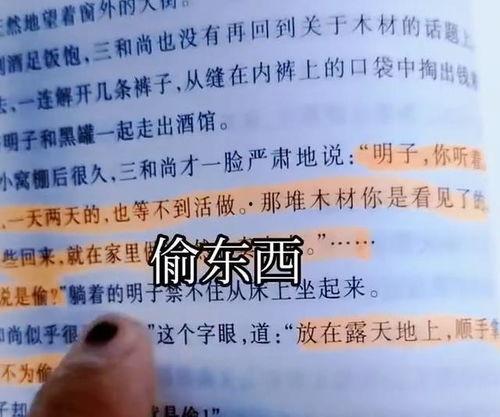 然地望着窗外的大街。
酒足饭饱,三和尚也没有再回到关于木材的话题上
一连解开几条裤子,从缝在内裤上的口袋中掏出钱来
明子和黑罐一起走出酒馆。
小窝棚后很久,三和尚才一脸严肃地说:“明子,你听着
一天两天的,也等不到活做。那堆木材你是看见了的
些回来,就在家里做
。”……
偷东西
说是偷?”躺着的明子禁不住从床上坐起来。
和尚似乎很
”这个字眼,道:“放在露天地上,顺手拿
不为偷
就是偷!”